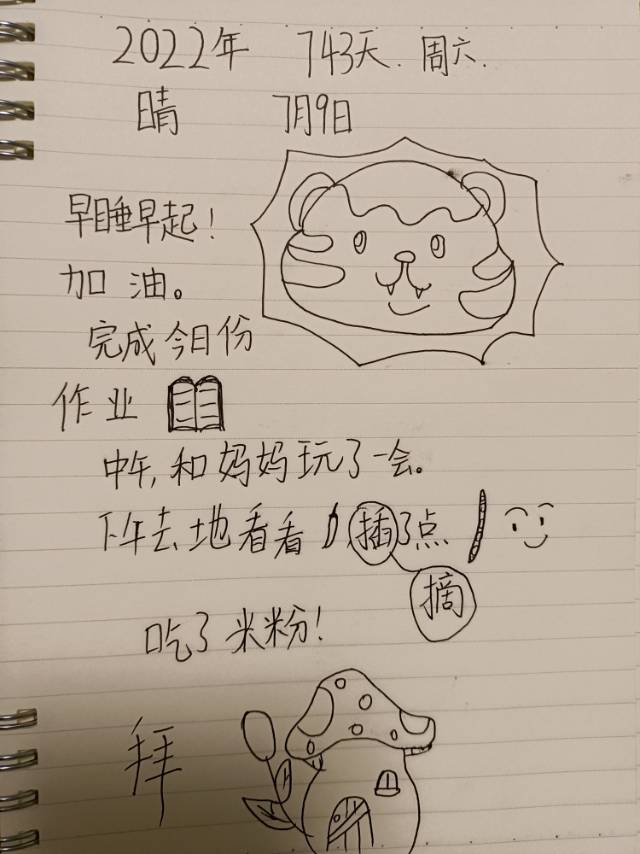 2022年 743天. 周六.
晴 7月9日
早睡早起!
加油。
完成今日份
作业
中午,和妈妈玩了一会。
下午去地看看 插了点
摘
吃了米粉!
拜